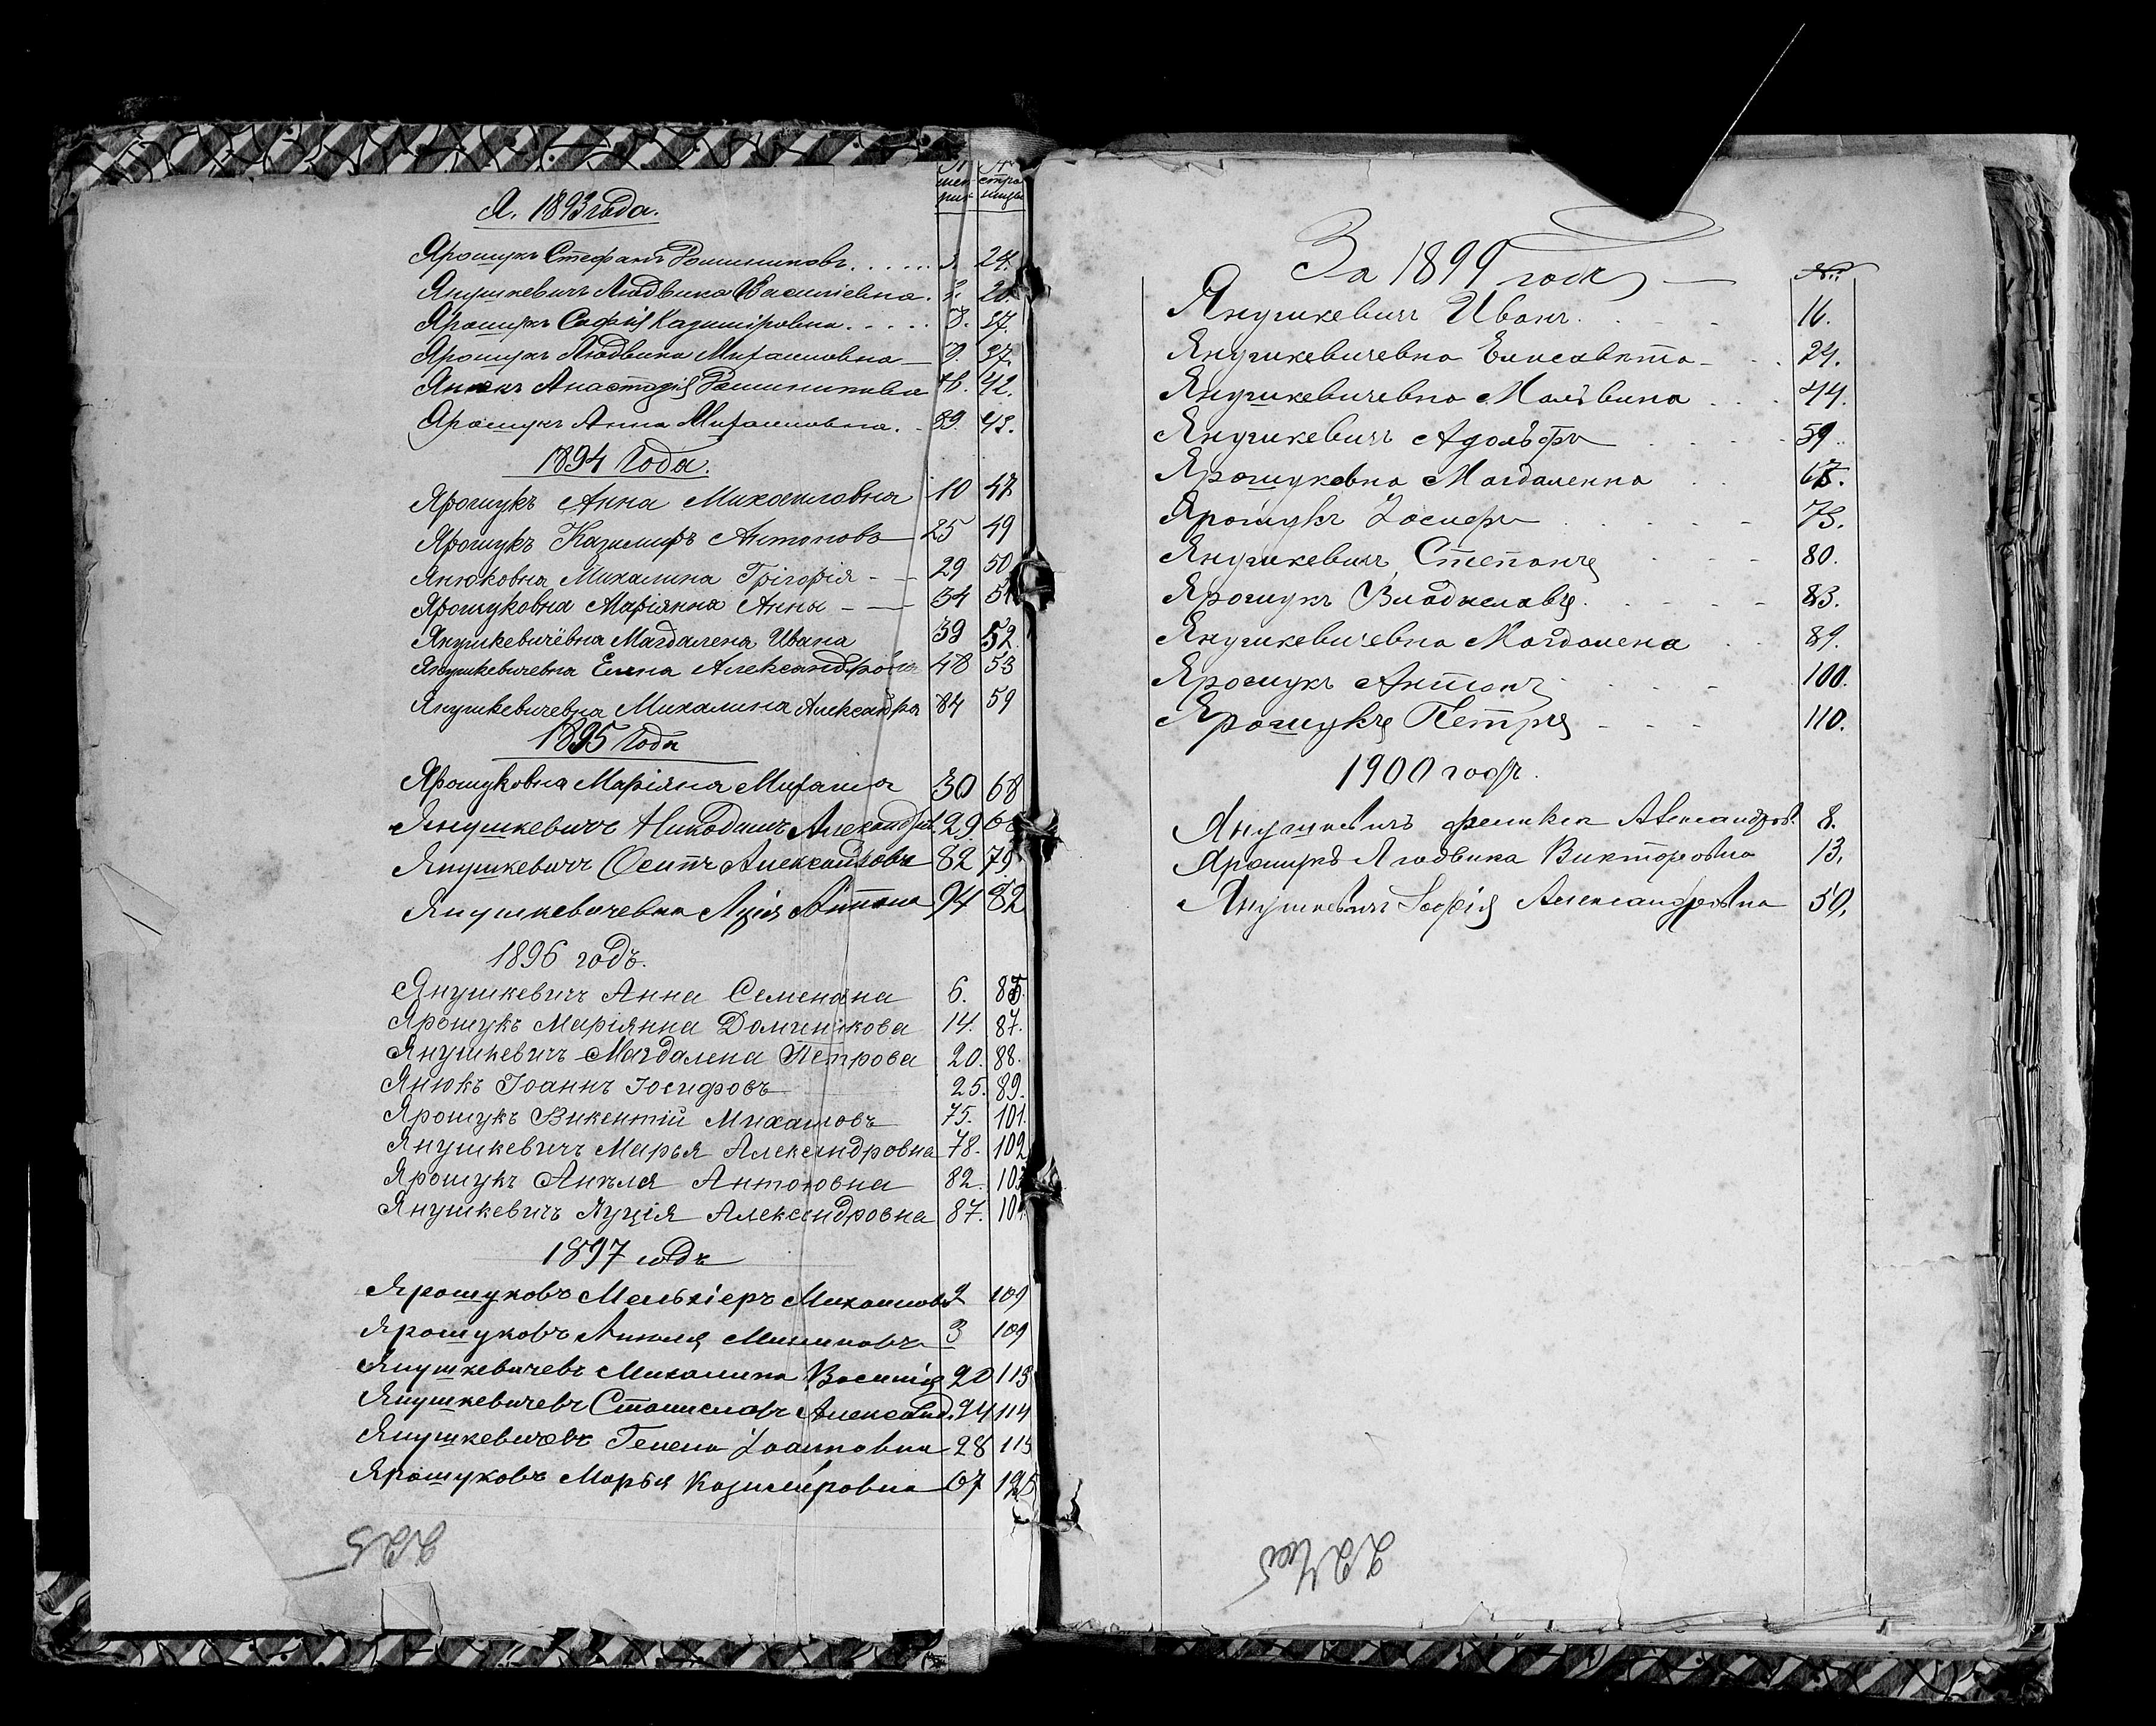 Я. 1893 года.
мет- стра
рик ницы
Ярошукъ Стефанъ Доминиковъ. 24.
Янушкевичъ Людвика Василіевна.
Ярошукъ Софія Казиміровна. 37.
Ярошукъ Людвика Михаиловна 9. 37.
Янюкъ Анастазія Доминикова 42.
Ярошукъ Анна Михаиловна. 89. 43.
1894 Года.
Ярошукъ Анна Михаиловна 10 47
Ярошукъ Казимиръ Антоновъ 25 49
Янюковна Михалина Грігорія 29 50
Ярошуковна Маріянна Анны 34 51
Янушкевичёвна Магдалена Ивана 39 52
Янушкевичевна Елена Александрова 48 53
Янушкевичевна Михалина Александра 84 59
1895 Года
Ярошуковна Маріяна Михаила 30 68
Янушкевичъ Никодимъ Александров. 29
Янушкевичъ Осипъ Александровъ 82 79.
Янушкевичевна Луція Антона 94 82
1896 годъ.
Янушкевичъ Анна Семенана 6. 85.
Ярошукъ Маріянна Доминікова 14. 87.
Янушкевичъ Магдалена Петрова 20. 88.
Янюкъ Іоаннъ Іосифовъ 25. 89.
Ярошукъ Викентій Михаловъ 75. 101.
Янушкевичъ Марья Александровна 78. 102
Ярошукъ Анеля Антоновна 82. 103
Янушкевичъ Луція Александровна 87. 104.
1897 годъ
Ярошуковъ Мельхіеръ Михаиловъ 2 109
Ярошуковъ Анеля 3 109
Янушкевичевъ Михалина Василія 20 113
Янушкевичевъ Станиславъ Александ. 24 114
Янушкевичевъ Гелена Іоанновна 28 115
Ярошуковъ Марья Казиміровна 67 125
За 1899 годъ №
Янушкевичъ Иванъ. 16.
Янушкевичевна Елисавета 24.
Янушкевичевна Мальвина 44.
Янушкевичъ Адольфъ 59.
Ярошуковна Магдаленна
Ярошукъ Іосифъ 73.
Янушкевичъ Степанъ 80.
Ярошукъ Владиславъ. 83.
Янушкевичевна Магдалена 89.
Ярошукъ Антонъ 100.
Ярошукъ Петръ 110.
1900 годъ.
Янушкевичъ Феликса Александров. 8.
Ярошукъ Людвика Викторовна 13.
Янушкевичъ Софія Александровна 50.